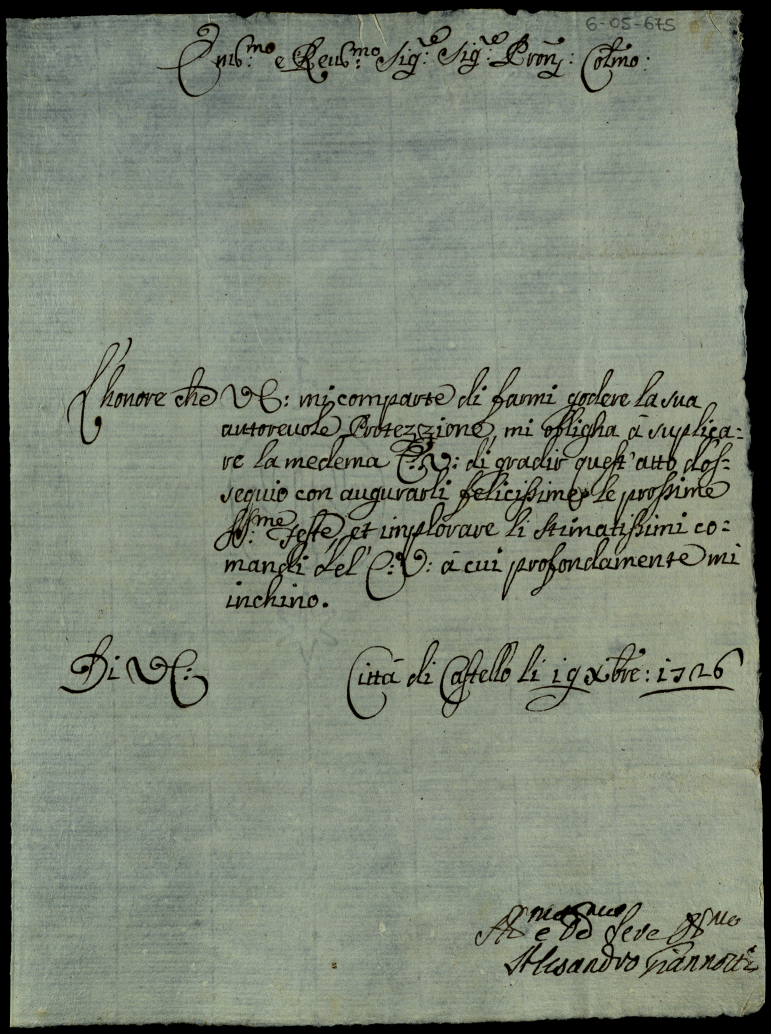 6-05-675
Em:mo e Reu:mo Sig:re Sig:re Pron: Colmo:
L'honore che V.E: mi comparte di farmi godere la sua
auttorevole Protezzione, mi obligha à suplica-
re la medema E:V: di gradir quest'atto d'os-
sequio con augurarli felicissime le prossime
SS:me Feste, et implorare li stimatissimi co-
mandi del' E:V: à cui profondamente mi
inchino.
Di V.E:
Città di Castello li 19 Xbre: 1726
e Serv
Alesandro Giannotti